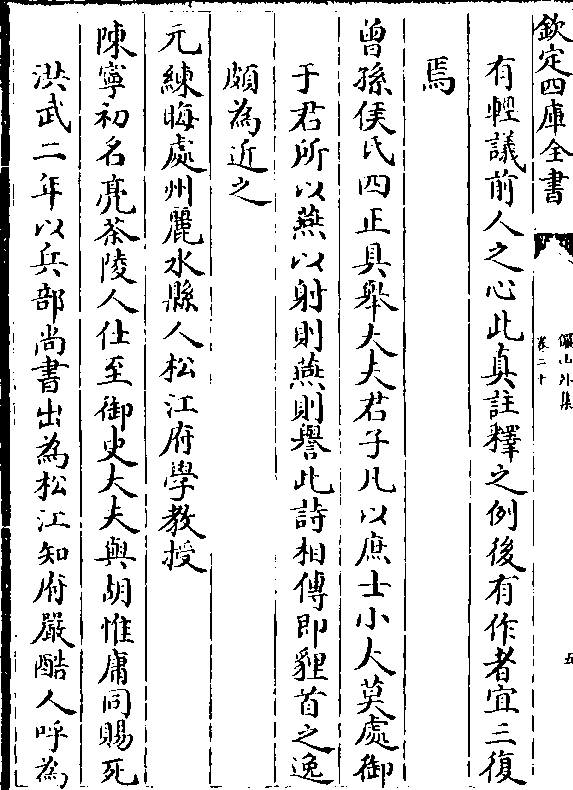 欽定四庫全書
儼山外集
卷二十
五
有輕議前人之心此真註釋之例後有作者宜三復
焉
曾孫侯氏四正具舉大夫君子凡以庶士小大莫處御
于君所以燕以射則燕則譽此詩相傳即貍首之逸
頗為近之
元練晦處州麗水縣人松江府學教授
陳寧初名亮茶陵人仕至御史大夫與胡惟庸同賜死
洪武二年以兵部尚書出為松江知府嚴酷人呼為